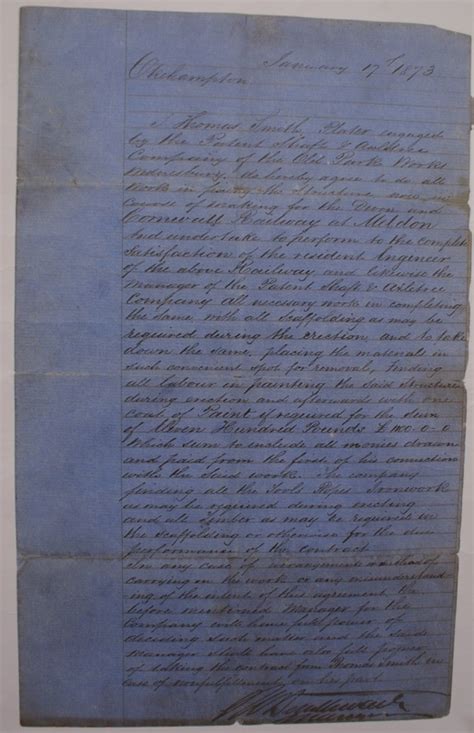 January 17th 1873
Okehampton
I Thomas Smith Plater engaged
by the Patent Shaft & Axletree
Company of the Old Park Works
Wednesbury. Do hereby agree to do all
work in the Structure now in
course of making for the Devon and
Cornwall Railway at Meldon
And undertake to perform to the complete
Satisfaction of the resident Engineer
of the above Railway and likewise the
Manager of the Patent Shaft & Axletree
Company All necessary work in completing
the same, with all Scaffolding as may be
required during the erection, and to take
down the same, placing the materials in
such convenient spot for removal, finding
all labour in painting the said Structure
during erection and afterwards with one
coat of Paint if required for the sum
of Eleven Hundred Pounds £1100-0-0
Which sum to include all monies drawn
and paid from the first of his connection
with the said work. The company
finding all the Tools Ropes Ironwork
as may be required during erecting
and all timber as may be required in
the scaffolding or otherwise for the due
performance of the contract
In any case of method of
carrying on the work or any misunderstand
ing of the intent of this agreement the
before mentioned Manager for the
Company will have full power of
deciding such matter and the said
Manager shall have also full power
of taking the contract from Thomas Smith in
case of nonfulfillment on his part